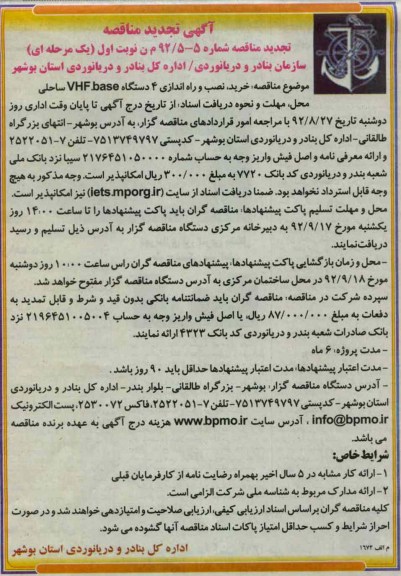 آگهی تجدید مناقصه
تجدید مناقصه شماره ۵-۹۲/۵ م ن نوبت اول (یک مرحله ای)
سازمان بنادر و دریانوردی/ اداره کل بنادر و دریانوردی استان بوشهر
موضوع مناقصه: خرید، نصب و راه اندازی ۴ دستگاه VHF.base ساحلی
محل، مهلت و نحوه دریافت اسناد: از تاریخ درج آگهی تا پایان وقت اداری روز
دوشنبه تاریخ ۹۲/۸/۲۷ با مراجعه امور قراردادهای مناقصه گزار، به آدرس بوشهر- انتهای بزرگراه
طالقانی- اداره کل بنادر و دریانوردی استان بوشهر- کدپستی ۷۵۱۳۷۴۹۷۹۷- تلفن ۷-۲۵۲۲۰۵۱
و ارائه معرفی نامه و اصل فیش واریز وجه به حساب شماره ۲۱۷۶۴۵۱۰۵۰۰۰۰ سیبا نزد بانک ملی
شعبه بندر و دریانوردی کد بانک ۷۷۲۰ به مبلغ ۳۰۰/۰۰۰ ریال امکانپذیر است. وجه مذکور به هیچ
وجه قابل استرداد نخواهد بود. ضمنا دریافت اسناد از سایت (iets.mporg.ir) نیز امکانپذیر است.
محل و مهلت تسلیم پاکت پیشنهادها: مناقصه گران باید پاکت پیشنهادها را تا ساعت ۱۴:۰۰ روز
یکشنبه مورخ ۹۲/۹/۱۷ به دبیرخانه مرکزی دستگاه مناقصه گزار به آدرس ذیل تسلیم و رسید
دریافت نمایند.
- محل و زمان بازگشایی پاکت پیشنهادها: پیشنهادهای مناقصه گران راس ساعت ۱۰:۰۰ روز دوشنبه
مورخ ۹۲/۹/۱۸ در محل ساختمان مرکزی به آدرس دستگاه مناقصه گزار مفتوح خواهد شد.
سپرده شرکت در مناقصه: مناقصه گران باید ضمانتنامه بانکی بدون قید و شرط و قابل تمدید به
دفعات به مبلغ ۸۷/۰۰۰/۰۰۰ ریال، یا اصل فیش واریز وجه به حساب ۲۱۹۶۴۵۱۰۰۵۰۰۴ نزد
بانک صادرات شعبه بندر و دریانوردی کد بانک ۴۳۲۳ ارائه نمایند.
- مدت پروژه: ۶ ماه
- مدت اعتبار پیشنهادها: مدت اعتبار پیشنهادها حداقل باید ۹۰ روز باشد.
- آدرس دستگاه مناقصه گزار: بوشهر- بزرگراه طالقانی- بلوار بندر- اداره کل بنادر و دریانوردی
استان بوشهر- کدپستی ۷۵۱۳۷۴۹۷۹۷- تلفن ۷-۲۵۲۲۰۵۱، فاکس ۲۵۳۰۰۷۲، پست الکترونیک
info@bpmo.ir ، آدرس سایت www.bpmo.ir هزینه درج آگهی به عهده برنده مناقصه
می باشد.
شرایط خاص:
۱- ارائه کار مشابه در ۵ سال اخیر بهمراه رضایت نامه از کارفرمایان قبلی
۲- ارائه مدارک مربوط به شناسه ملی شرکت الزامی است.
کلیه مناقصه گران براساس اسناد ارزیابی کیفی، ارزیابی صلاحیت و امتیازدهی خواهند شد و در صورت
احراز شرایط و کسب حداقل امتیاز پاکات اسناد مناقصه آنها گشوده می شود.
اداره کل بنادر و دریانوردی استان بوشهر
م الف ۱۶۷۲